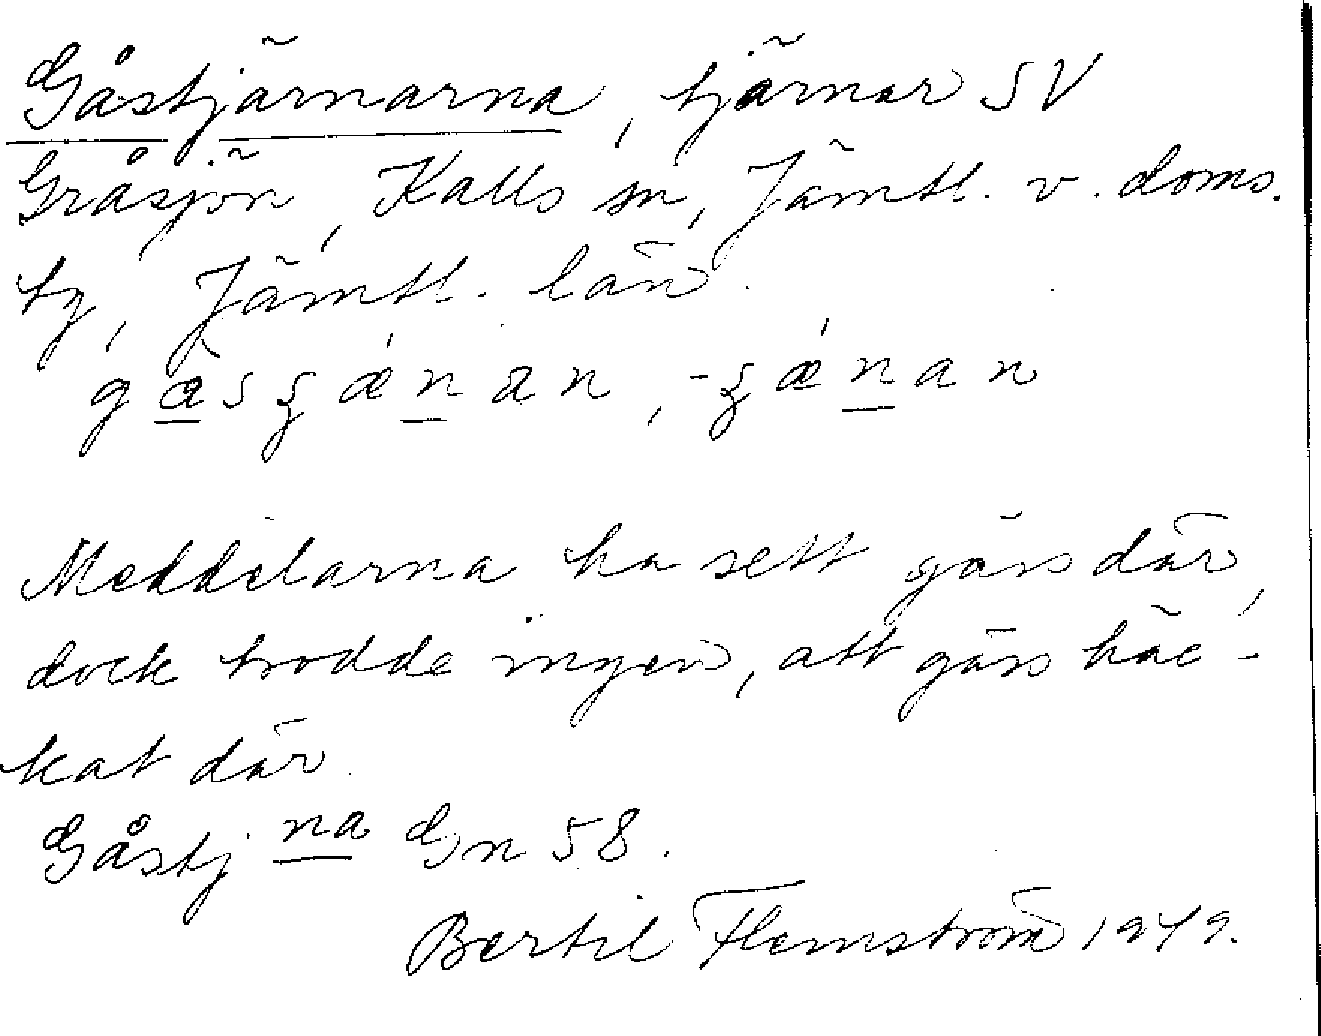 Gåstjärnarna, tjärnar SV
Gråsjön, Kalls sn, Jämtl. v. doms.
tg, Jämtl. län.
Meddelarna ha sett gäss där,
dock trodde ingen, att gäss häc-
kat där.
Gåstj na Gn 58.
Bertil Flemström 1949.